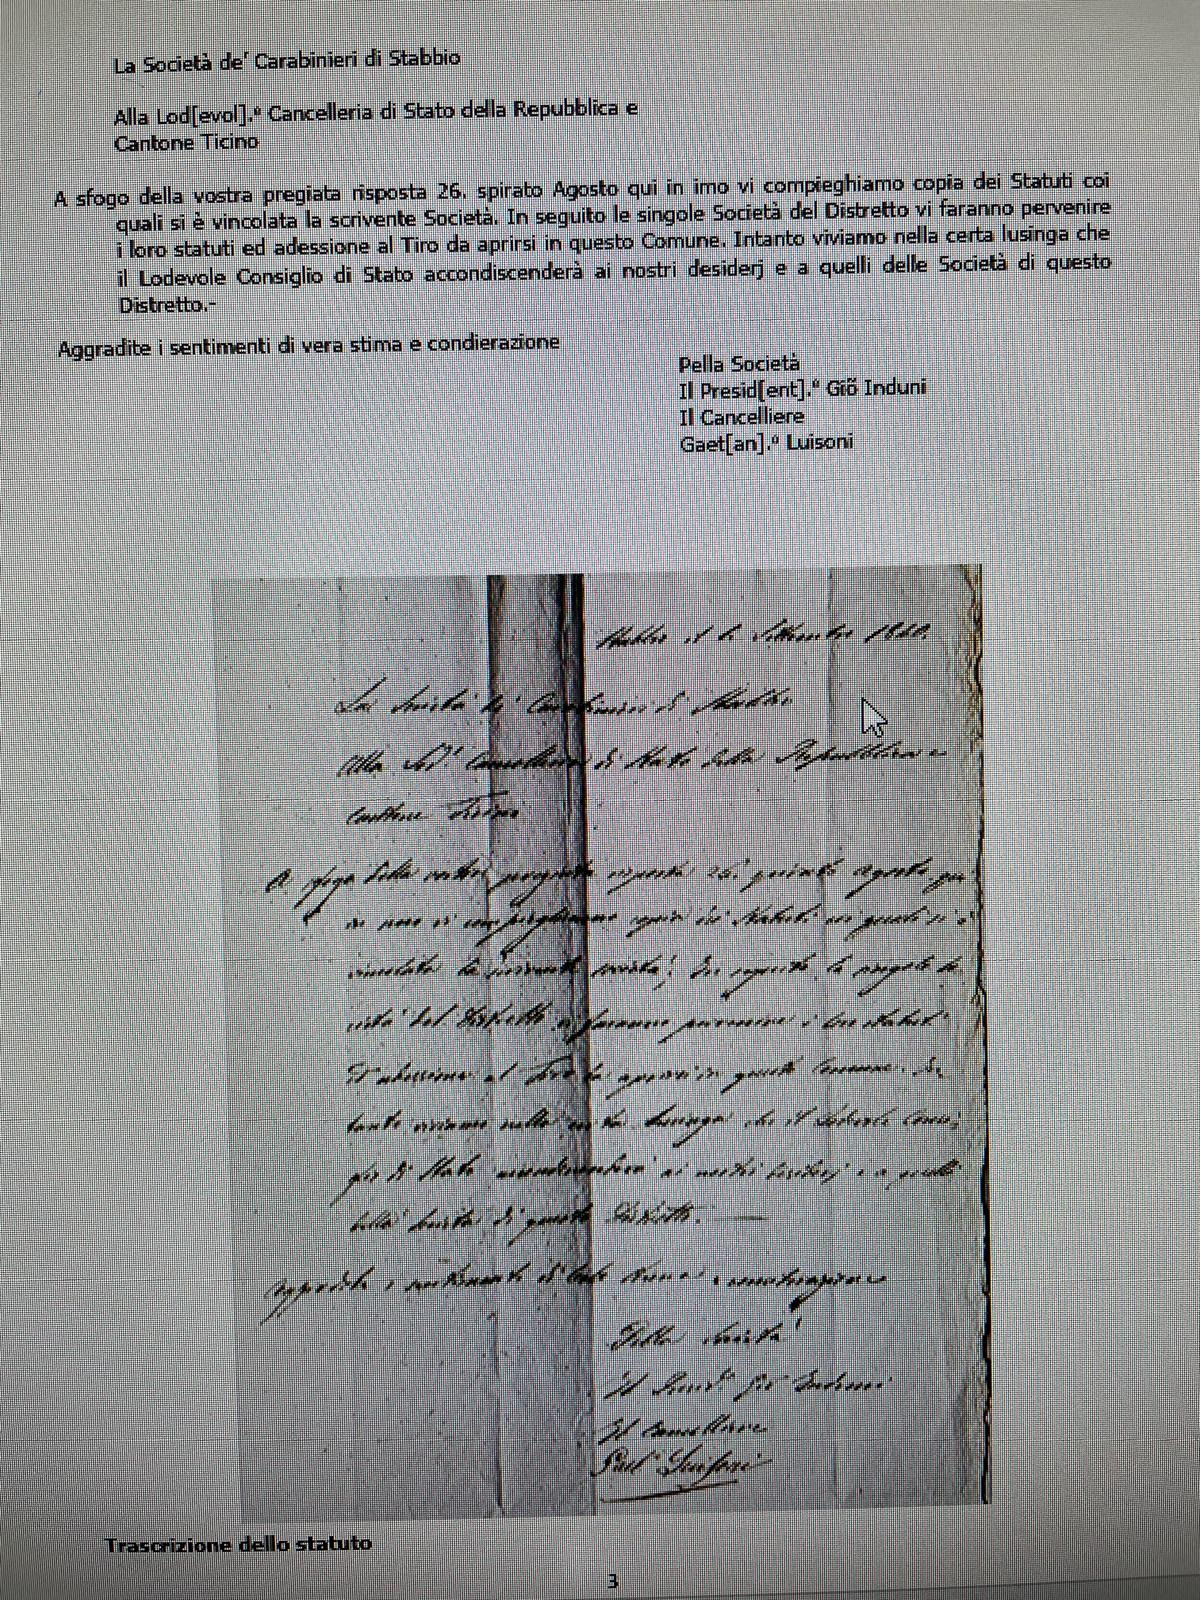 La Società de' Carabinieri di Stabbio
Alla Lod[evol].ª Cancelleria di Stato della Repubblica e
Cantone Ticino
A sfogo della vostra pregiata risposta 26. spirato Agosto qui in imo vi compieghiamo copia dei Statuti coi
quali si è vincolata la scrivente Società. In seguito le singole Società del Distretto vi faranno pervenire
i loro statuti ed adessione al Tiro da aprirsi in questo Comune. Intanto viviamo nella certa lusinga che
il Lodevole Consiglio di Stato accondiscenderà ai nostri desiderj e a quelli delle Società di questo
Distretto.-
Aggradite i sentimenti di vera stima e condierazione
Pella Società
Il Presid[ent].ª Giõ Induni
Il Cancelliere
Gaet[an].º Luisoni
Stabbio
La Società de' Carabinieri di Stabbio
Alla Cancelleria di Stato della Repubblica e
Cantone Ticino
A sfogo della vostra pregiata risposta 26. agosto qui
in imo vi compieghiamo copia dei Statuti coi quali si è
vincolata la scrivente Società. In seguito le singole So
cietà del Distretto vi faranno pervenire i loro statuti
ed adessione al Tiro da aprirsi in questo Comune. In
tanto viviamo nella certa lusinga che il Lodevole Consi
glio di Stato accondiscenderà ai nostri desiderj e a quelli
delle Società di questo Distretto.
Aggradite i sentimenti di
Pella Società
Il Gio Induni
Il Cancelliere
Luisoni
Trascrizione dello statuto
3